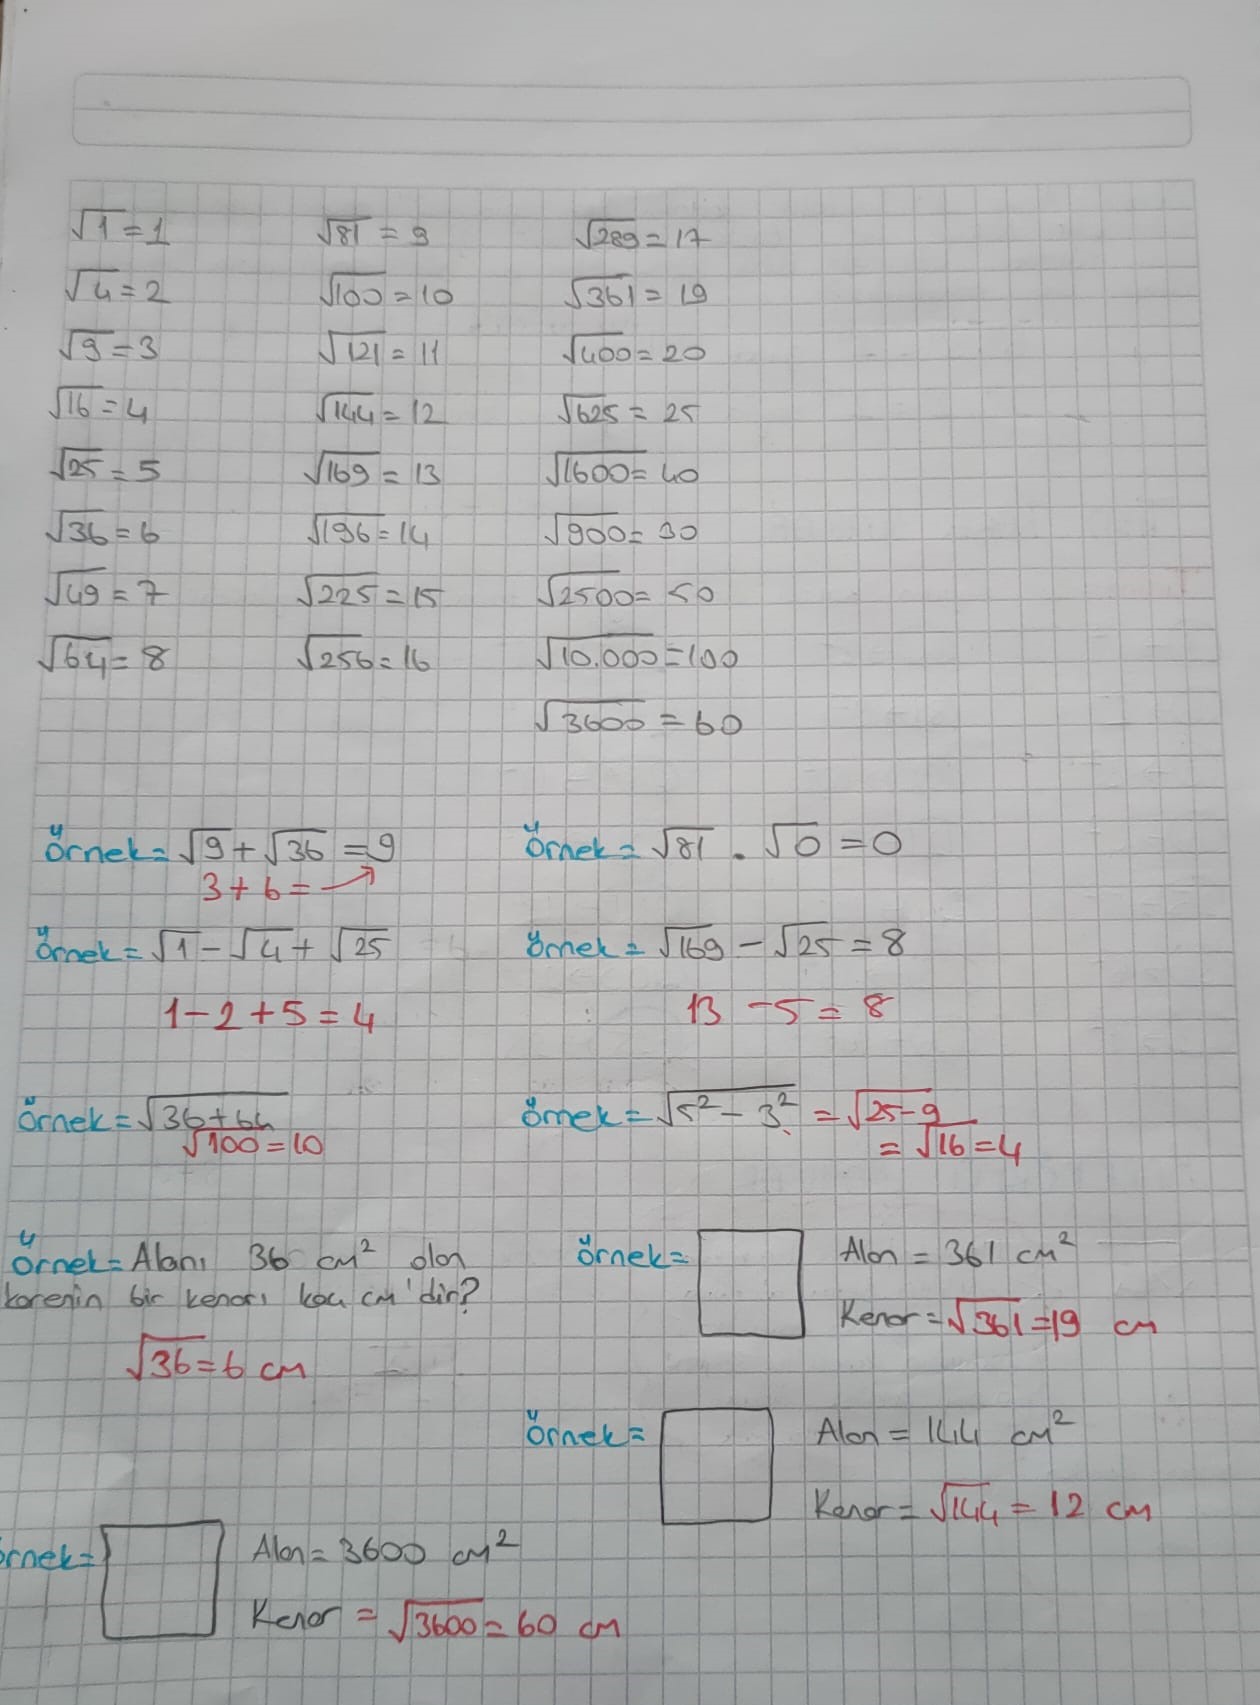 √1 = 1
√4 = 2
√9 = 3
√16 = 4
√25 = 5
√36 = 6
√49 = 7
√64 = 8
√81 = 9
√100 = 10
√121 = 11
√144 = 12
√169 = 13
√196 = 14
√225 = 15
√256 = 16
√289 = 17
√361 = 19
√400 = 20
√625 = 25
√1600 = 40
√900 = 30
√2500 = 50
√10.000 = 100
√3600 = 60
Örnek = √9 + √36 = 9
3 + 6 =
Örnek = √81 . √0 = 0
Örnek = √1 - √4 + √25
1 - 2 + 5 = 4
Örnek = √169 - √25 = 8
13 - 5 = 8
Örnek = √36+64
√100 = 10
Örnek = √5² - 3² = √25-9
= √16 = 4
Örnek = Alanı 36 cm² olan
karenin bir kenarı kaç cm'dir?
√36 = 6 cm
Örnek =
Alan = 361 cm²
Kenar = √361 = 19 cm
Örnek =
Alan = 144 cm²
Kenar = √144 = 12 cm
örnek =
Alan = 3600 cm²
Kenar = √3600 = 60 cm